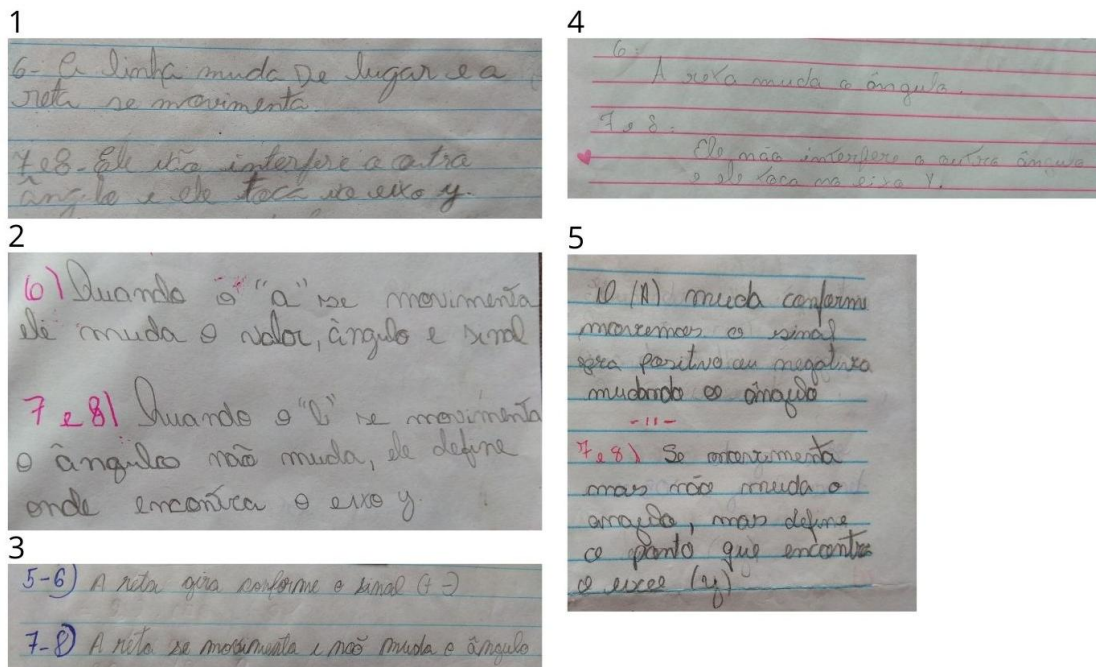 1
6- A linha muda De lugar e a
reta se movimenta.
7e8- Ele não interfere a outra
ângulo e ele toca no eixo y.
2
6) Quando o "a" se movimenta
ele muda o valor, ângulo e sinal
7 e 8) Quando o "b" se movimenta
o ângulo não muda, ele define
onde encontra o eixo y.
3
5-6) A reta gira conforme o sinal (+ -)
7-8) A reta se movimenta e não muda o ângulo
4
6:
A reta muda o ângulo.
7 e 8:
Ele não interfere a outra
e ele toca no eixo Y.
5
O (A) muda conforme
movemos o sinal
positivo ou negativo
mudando o ângulo
-11-
7 e 8) Se
mas não muda o
ângulo, mas define
o ponto que encontra
o (y)